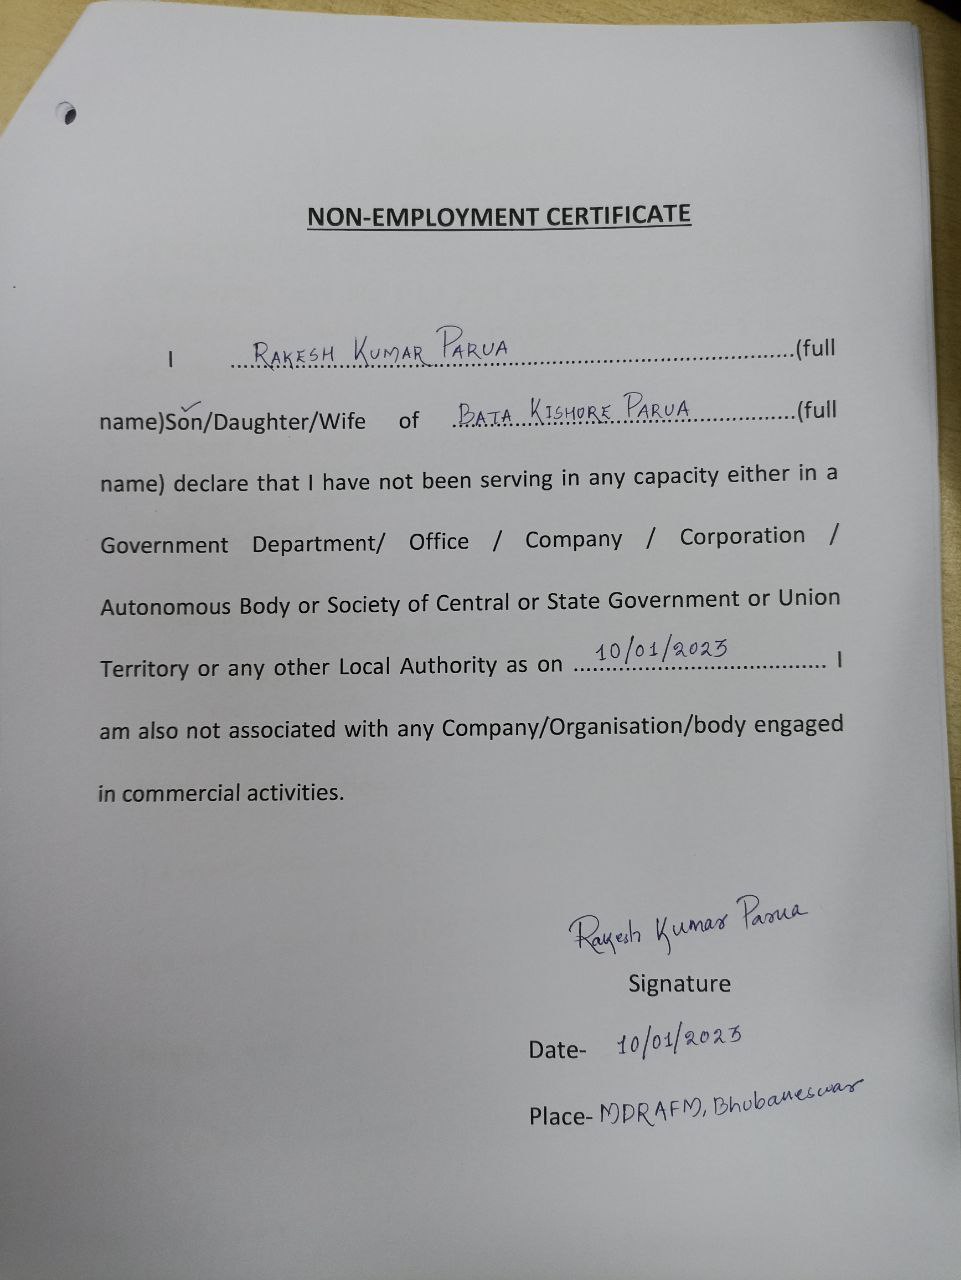 NON-EMPLOYMENT CERTIFICATE
I ....RAKESH KUMAR PARUA..............................(full
name)Son/Daughter/Wife of ...BATA KISHORE PARUA...............(full
name) declare that I have not been serving in any capacity either in a
Government Department/ Office / Company / Corporation /
Autonomous Body or Society of Central or State Government or Union
Territory or any other Local Authority as on ...10/01/2023................ I
am also not associated with any Company/Organisation/body engaged
in commercial activities.
Rakesh Kumar Parua
Signature
Date- 10/01/2023
Place- MDRAFM, Bhubaneswar